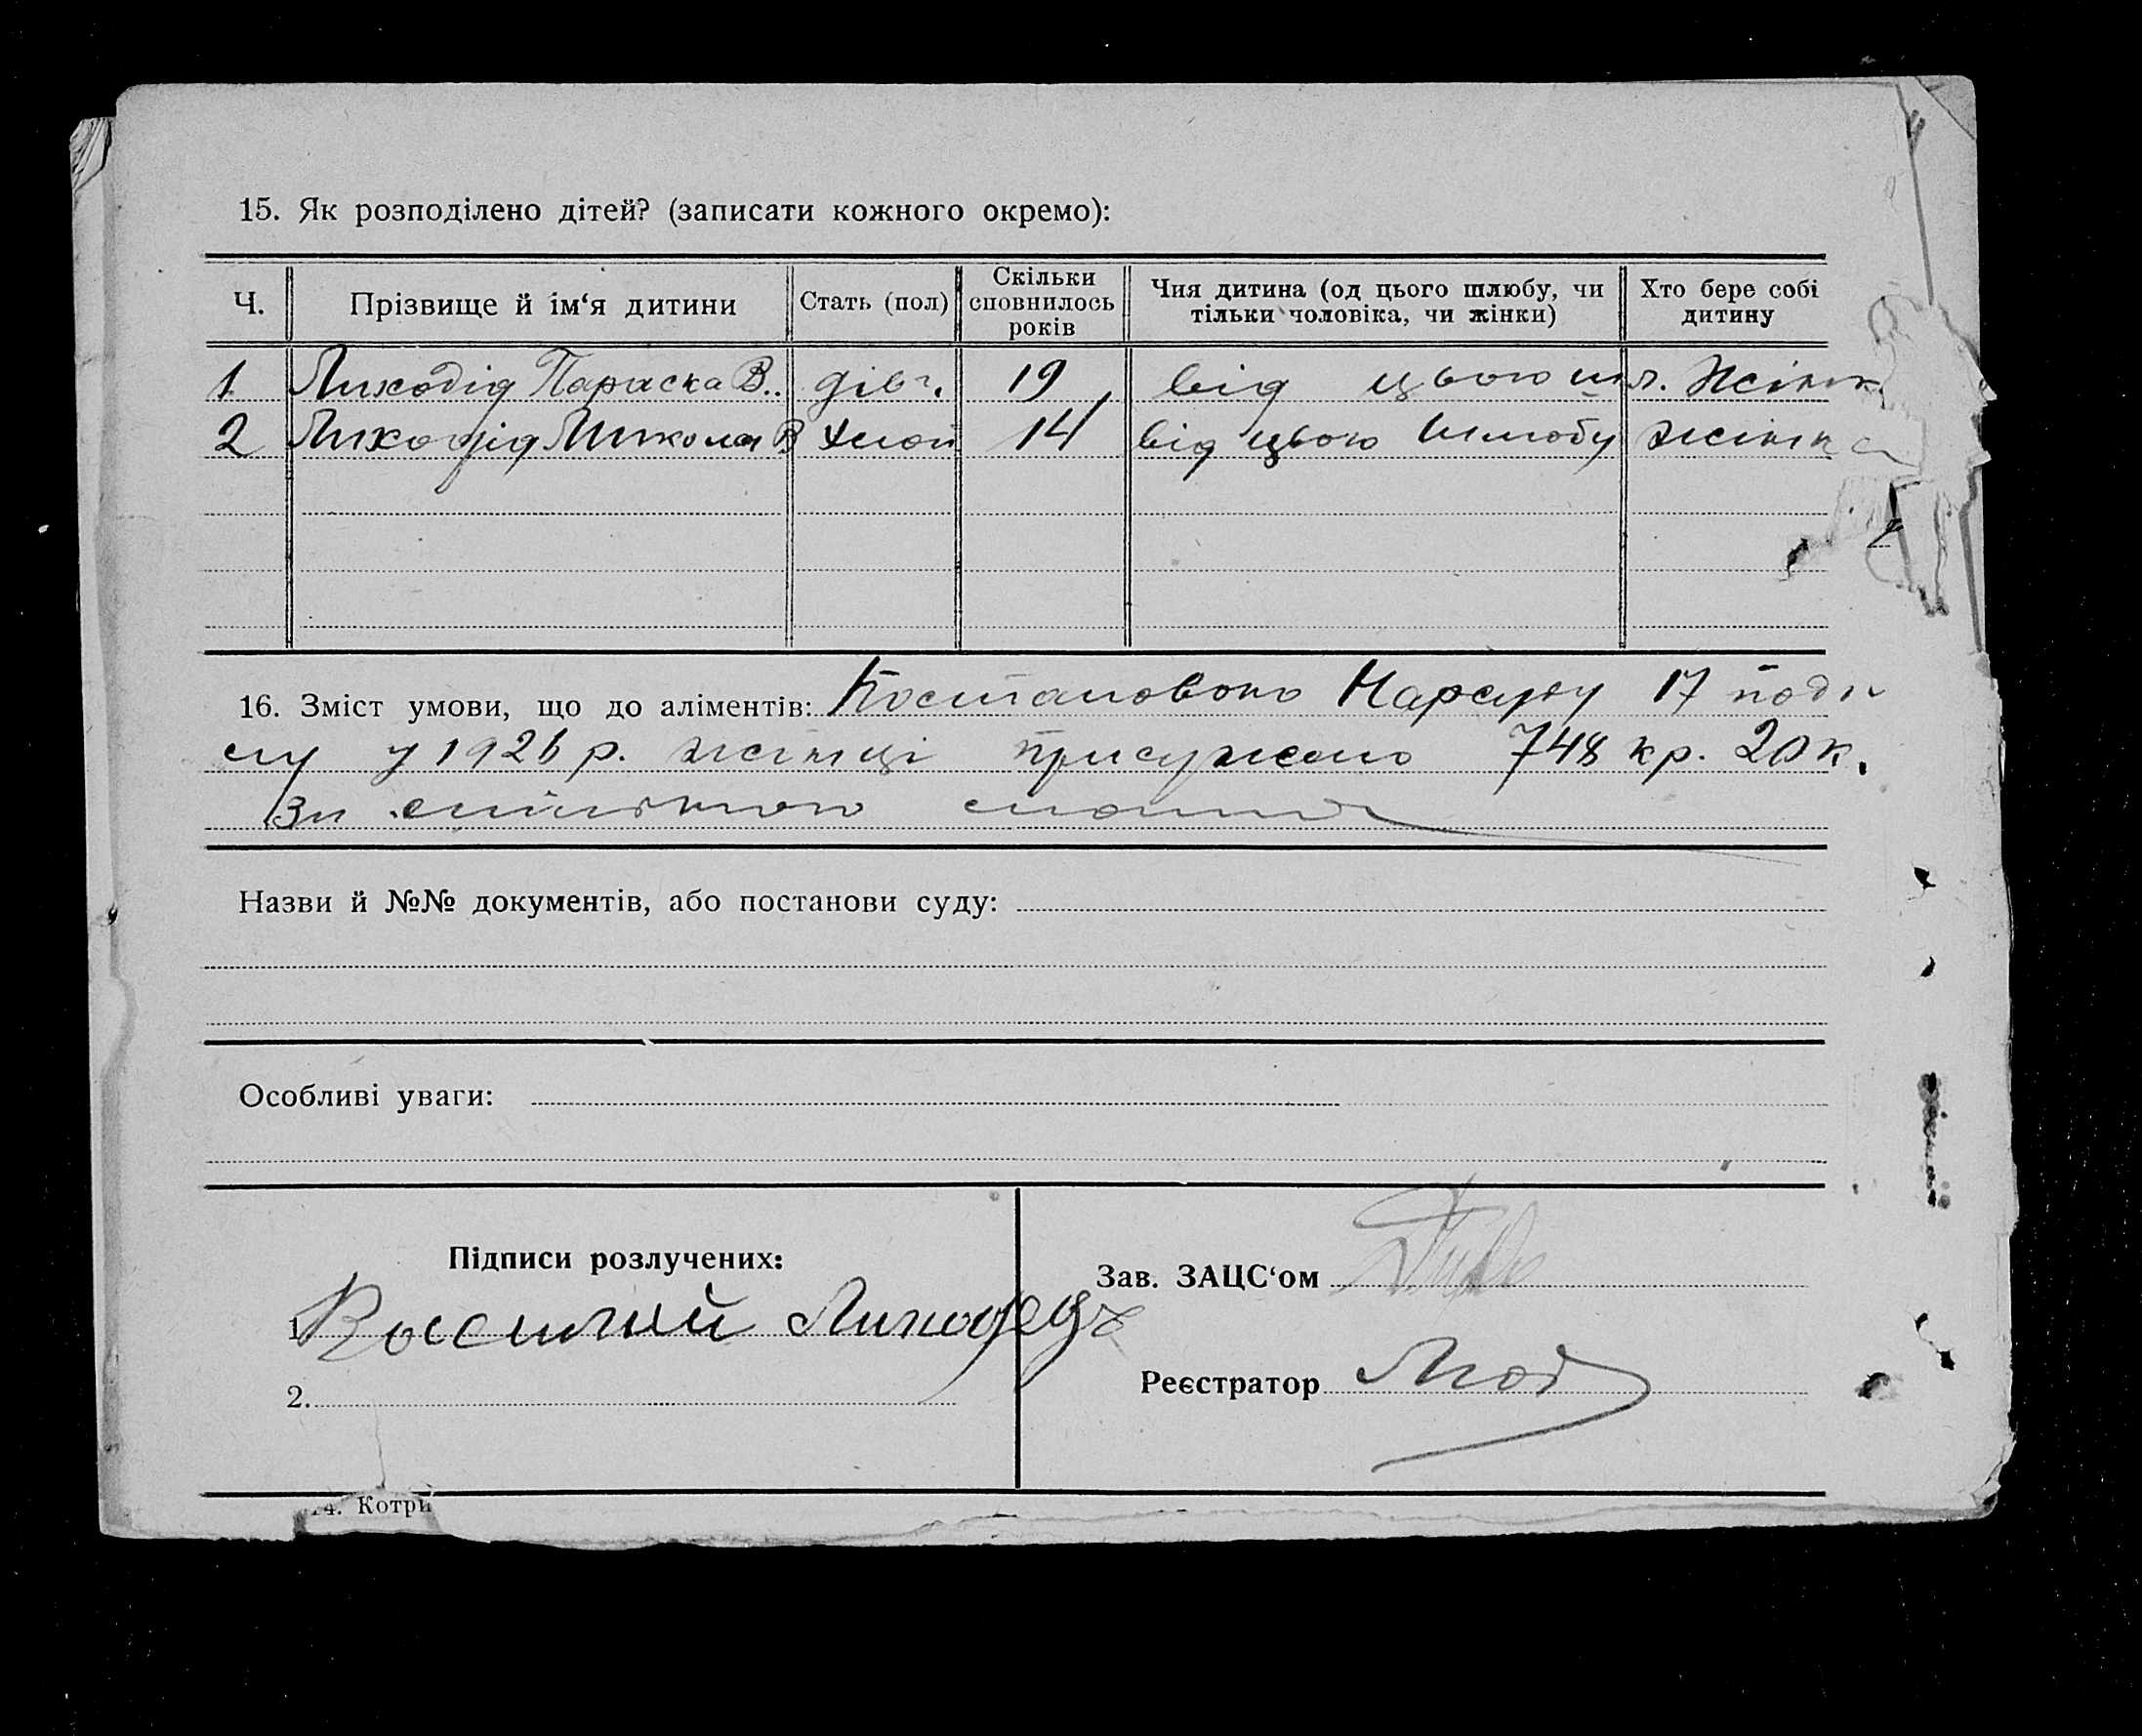 15. Як розподілено дітей? (записати кожного окремо):
Ч. Прізвище й ім‘я дитини Стать (пол) Скільки сповнилось років Чия дитина (од цього шлюбу, чи тільки чоловіка, чи жінки) Хто бере собі дитину
1 Лиходід Параска В.. дівч. 19 від цього шл. Жінк
2 Лиходід Микола В 14 від цього шлюбу жінка
16. Зміст умови, що до аліментів: Постановою Нарсуду 17
у 1926 р. жінці присужено 748 кр. 20 к.
За
Назви й №№ документів, або постанови суду:
Особливі уваги:
Підписи розлучених:
Зав. ЗАЦС‘ом
1. Василий Лиходедъ
Реєстратор
2.
4. Котри